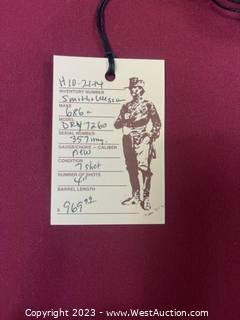 H10-21-14
INVENTORY NUMBER
Smith & Wesson
MAKE
686+
MODEL
DRH 7260
SERIAL NUMBER
357 mag
GAUGE/CHOKE - CALIBER
New
CONDITION
7 shot
NUMBER OF SHOTS
4"
BARREL LENGTH
$969.99
Copyright © 2023 - www.WestAuction.com